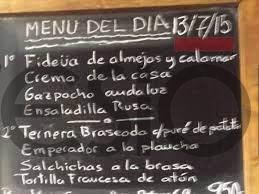 MENU DEL DIA 13/7/15
1º Fideua de almejas y calamar
Crema de la casa
Gazpacho andaluz
Ensaladilla Rusa
2º Ternera Braseada c/puré de patata
Emperador a la plancha
Salchichas a la brasa
Tortilla Francesa de atún